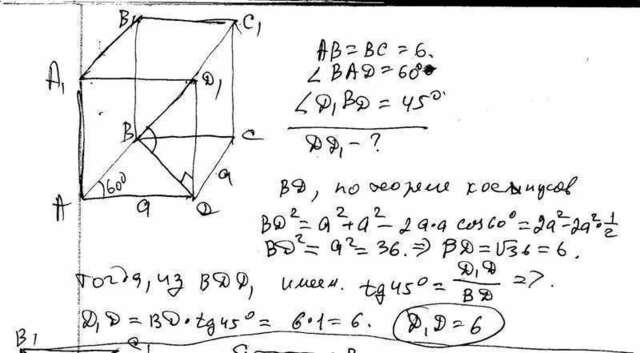 B₁
C₁
A₁
D₁
B
C
A
60°
a
D
a
AB = BC = 6.
∠BAD = 60°
∠D₁BD = 45°
DD₁ - ?
BD, по теореме косинусов
BD² = a² + a² - 2a·a cos60° = 2a² - 2a²·1/2
BD² = a² = 36. ⇒ BD = √36 = 6.
Тогда, из BDD₁ имеем. tg45° = D₁D/BD ⇒
D₁D = BD·tg45° = 6·1 = 6. D₁D = 6
B₁